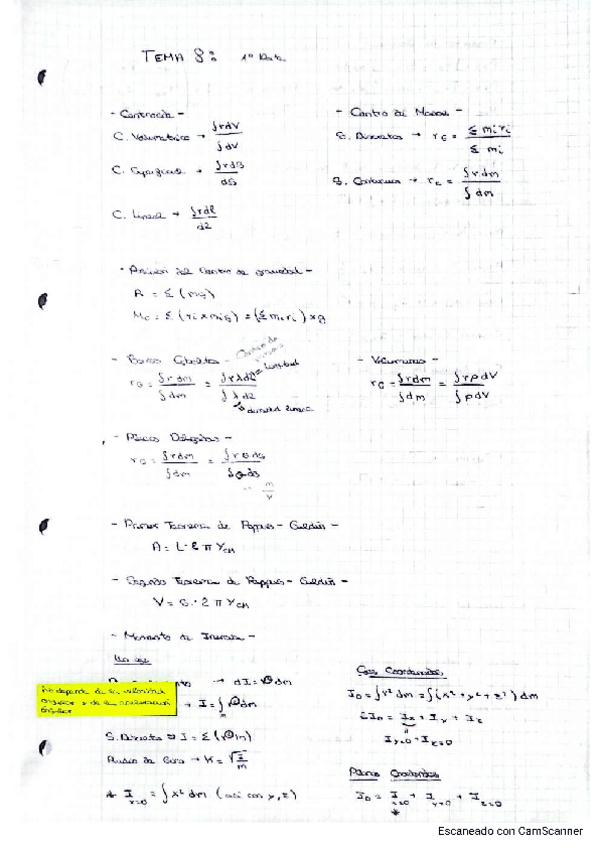 TEMA 8: 1ª Parte
- Centroide -
C. Volumétrico → ∫rdV / ∫dV
C. Superficial → ∫rdS / dS
C. Lineal → ∫rdl / dl
- Centro de Masas -
S. Discretos → r_G = Σ mi ri / Σ mi
S. Continuos → r_G = ∫r dm / ∫dm
· Posición del centro de gravedad -
R = Σ (mg)
M_G = Σ (ri × mi g) = (Σ mi ri) × g
r_G = ∫r dm / ∫dm = ∫r λ dl / ∫λ dl
longitud
densidad lineal
- Volúmenes -
r_G = ∫rdm / ∫dm = ∫rρdV / ∫ρdV
- Placas Delgadas -
r_G = ∫rdm / ∫dm = ∫rσds / ∫σds
m / V
- Primer Teorema de Pappus - Guldin -
A = L · 2 π Y_CM
- Segundo Teorema de Pappus - Guldin -
V = S · 2 π Y_CM
- Momento de Inercia -
Un eje
→ dI = r² dm
No depende de su velocidad
angular y de su aceleración
angular
→ I = ∫ r² dm
S. Discreto ⇒ I = Σ (r² m)
Radio de Giro → K = √(I/m)
* I_x=0 = ∫x² dm (así con y, z)
Ejes Coordenados
I_0 = ∫r² dm = ∫(x² + y² + z²) dm
2I_0 = I_x + I_y + I_z
I_y=0 + I_z=0
Planos Coordenados
I_0 = I_x=0 + I_y=0 + I_z=0
*
Escaneado con CamScanner